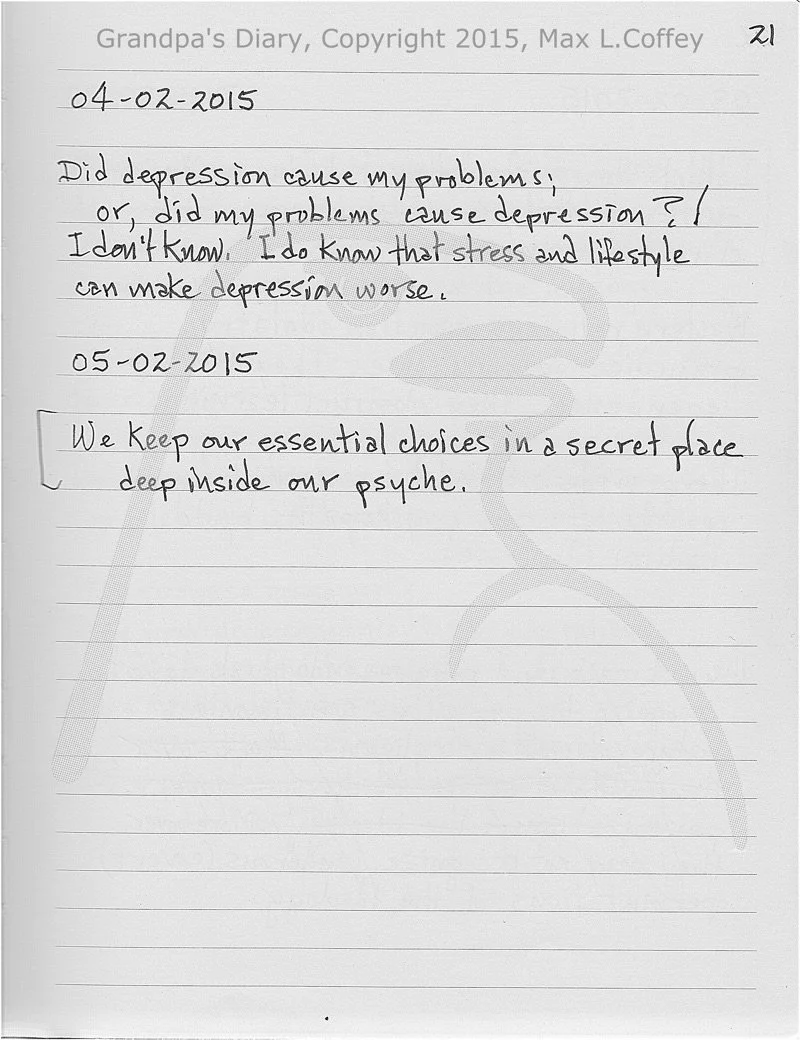 Grandpa's Diary, Copyright 2015, Max L.Coffey
21
04-02-2015
Did depression cause my problems;
or, did my problems cause depression?!
I don't know. I do know that stress and lifestyle
can make depression worse.
05-02-2015
We keep our essential choices in a secret place
deep inside our psyche.